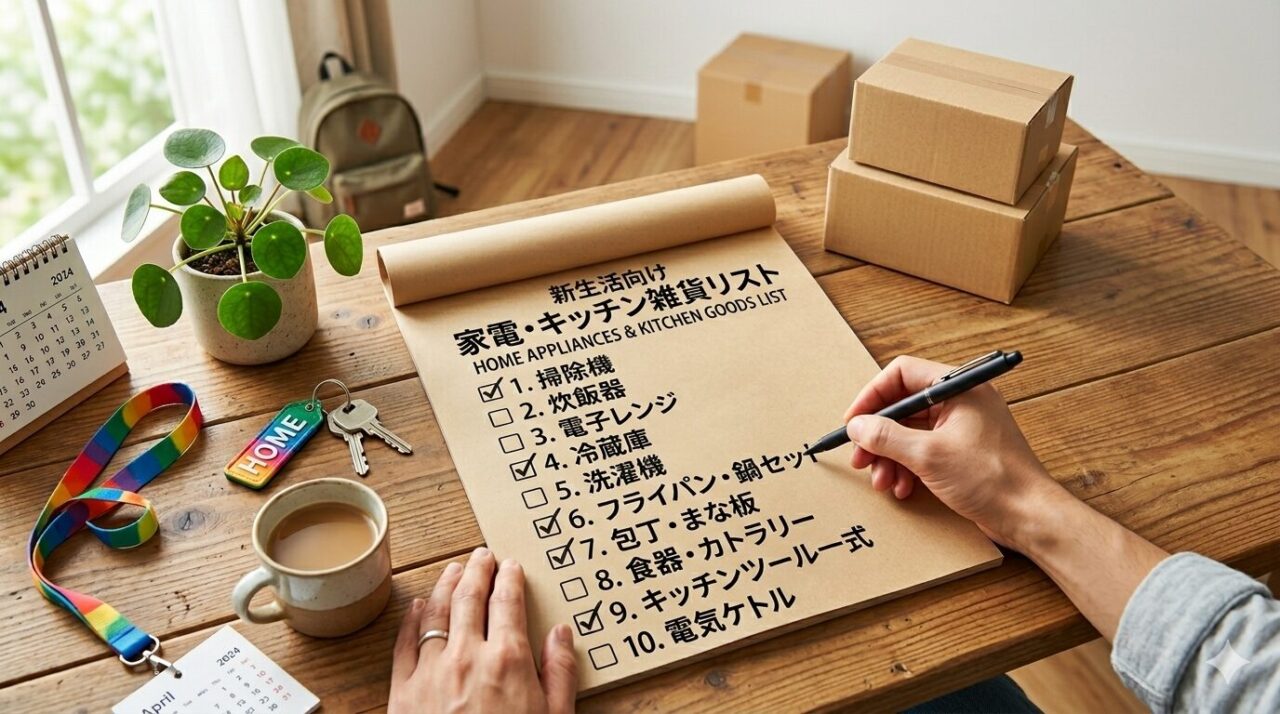 新生活向け
家電・キッチン雑貨リスト
HOME APPLIANCES & KITCHEN GOODS LIST
☑ 1. 掃除機
☐ 2. 炊飯器
☐ 3. 電子レンジ
☑ 4. 冷蔵庫
☐ 5. 洗濯機
☑ 6. フライパン・鍋セット
☑ 7. 包丁・まな板
☐ 8. 食器・カトラリー
☑ 9. キッチンツール一式
☐ 10. 電気ケトル
HOME
2024
April
2024